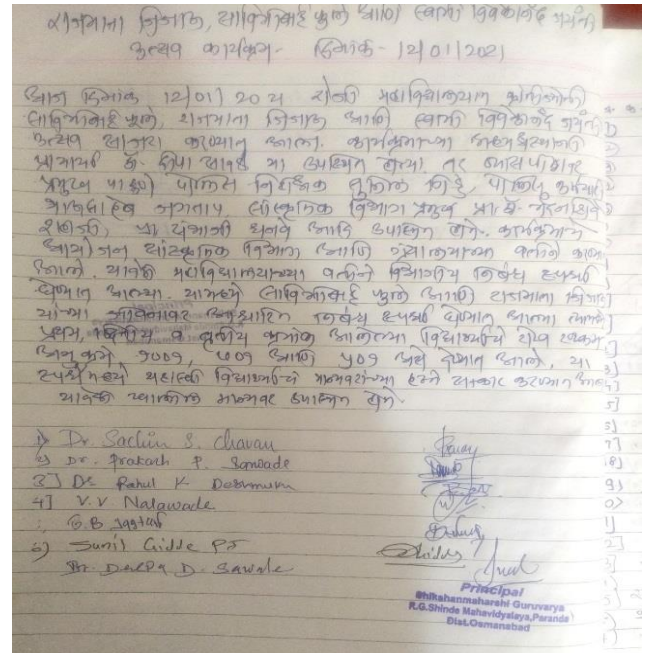 राजमाता जिजाऊ, सावित्रीबाई फुले आणि स्वामी विवेकानंद जयंती
उत्सव कार्यक्रम - दिनांक - 12/01/2021
आज दिनांक 12/01/2021 रोजी महाविद्यालयात क्रांतीज्योती
सावित्रीबाई फुले, राजमाता जिजाऊ आणि स्वामी विवेकानंद जयंती
उत्सव साजरा करण्यात आला. कार्यक्रमाच्या अध्यक्षस्थानी
प्राचार्या डॉ. दीपा सावळे या उपस्थित होत्या तर व्यासपीठावर
प्रमुख पाहुणे पोलिस निरीक्षक सुनिल गिड्डे, पोलिस कर्मचारी
बाळासाहेब जगताप, सांस्कृतिक विभाग प्रमुख प्रा. डॉ.
प्रा. संभाजी धनवे आदि उपस्थित होते. कार्यक्रमाचे
आयोजन सांस्कृतिक विभाग आणि ग्रंथालयाच्या वतीने करण्यात
आले. यावेळी महाविद्यालयाच्या वतीने विभागीय निबंध स्पर्धा
घेण्यात आल्या. यामध्ये सावित्रीबाई फुले आणि राजमाता जिजाऊ
यांच्या जीवनावर आधारित निबंध स्पर्धा घेण्यात आल्या त्यामध्ये
प्रथम, द्वितीय व तृतीय क्रमांक आलेल्या विद्यार्थ्यांचे रोख रक्कम
अनुक्रमे १००१, ७०१ आणि ५०१ असे देण्यात आले. या
स्पर्धेमध्ये यशस्वी विद्यार्थ्यांचे मान्यवरांच्या हस्ते सत्कार करण्यात आला
यावेळी खालील मान्यवर उपस्थित होते.
1) Dr. Sachin S. Chavan
2) Dr. Prakash P. Sarwade
3] Dr. Rahul K Deshmukh
4] V. V. Nalawade
G. B. Jagtap
6) Sunil Gidde PI
Dr. Deepa D. Sawale
Principal
Shikshanmaharshi Guruvarya
R.G.Shinde Mahavidyalaya,Paranda
Dist.Osmanabad